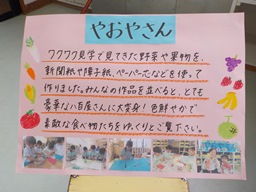 やおやさん
ワクワク見学で見てきた野菜や果物を、
新聞紙や障子紙、ペーパー芯などを使って
作りました。みんなの作品を並べると、とても
豪華な八百屋さんに大変身！色鮮やかで
素敵な食べ物たちをゆっくりとご覧下さい。